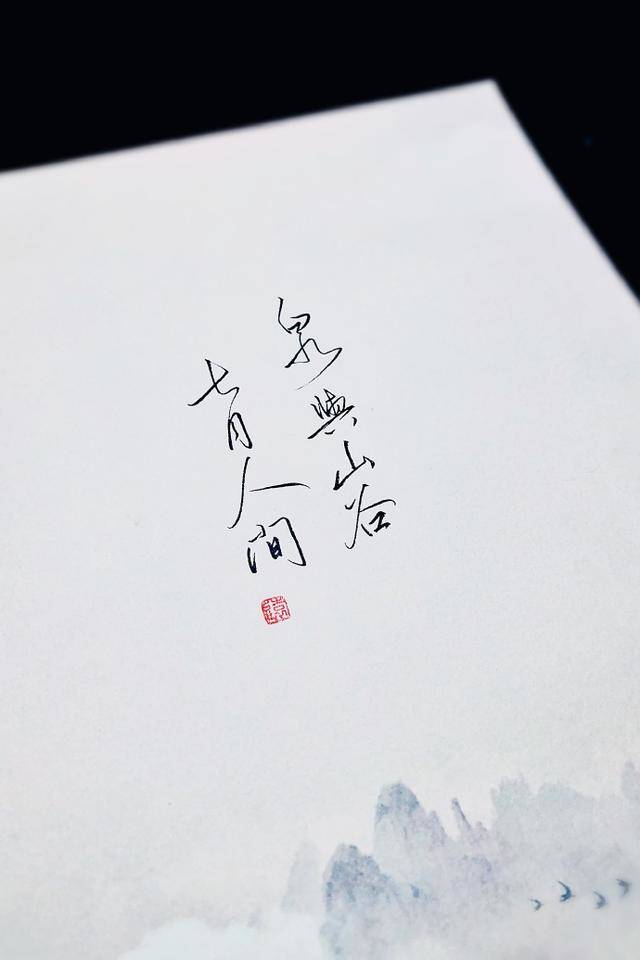 泉與山谷
七月人间